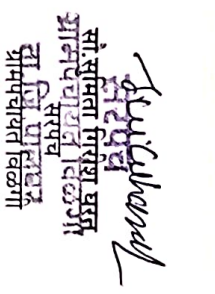 सरपंच
सौ.सुमिता गिरीश घरत
ग्रामपंचायत
सरपंच
ता. जि. पालघर
ग्रामपंचायत विळंगी